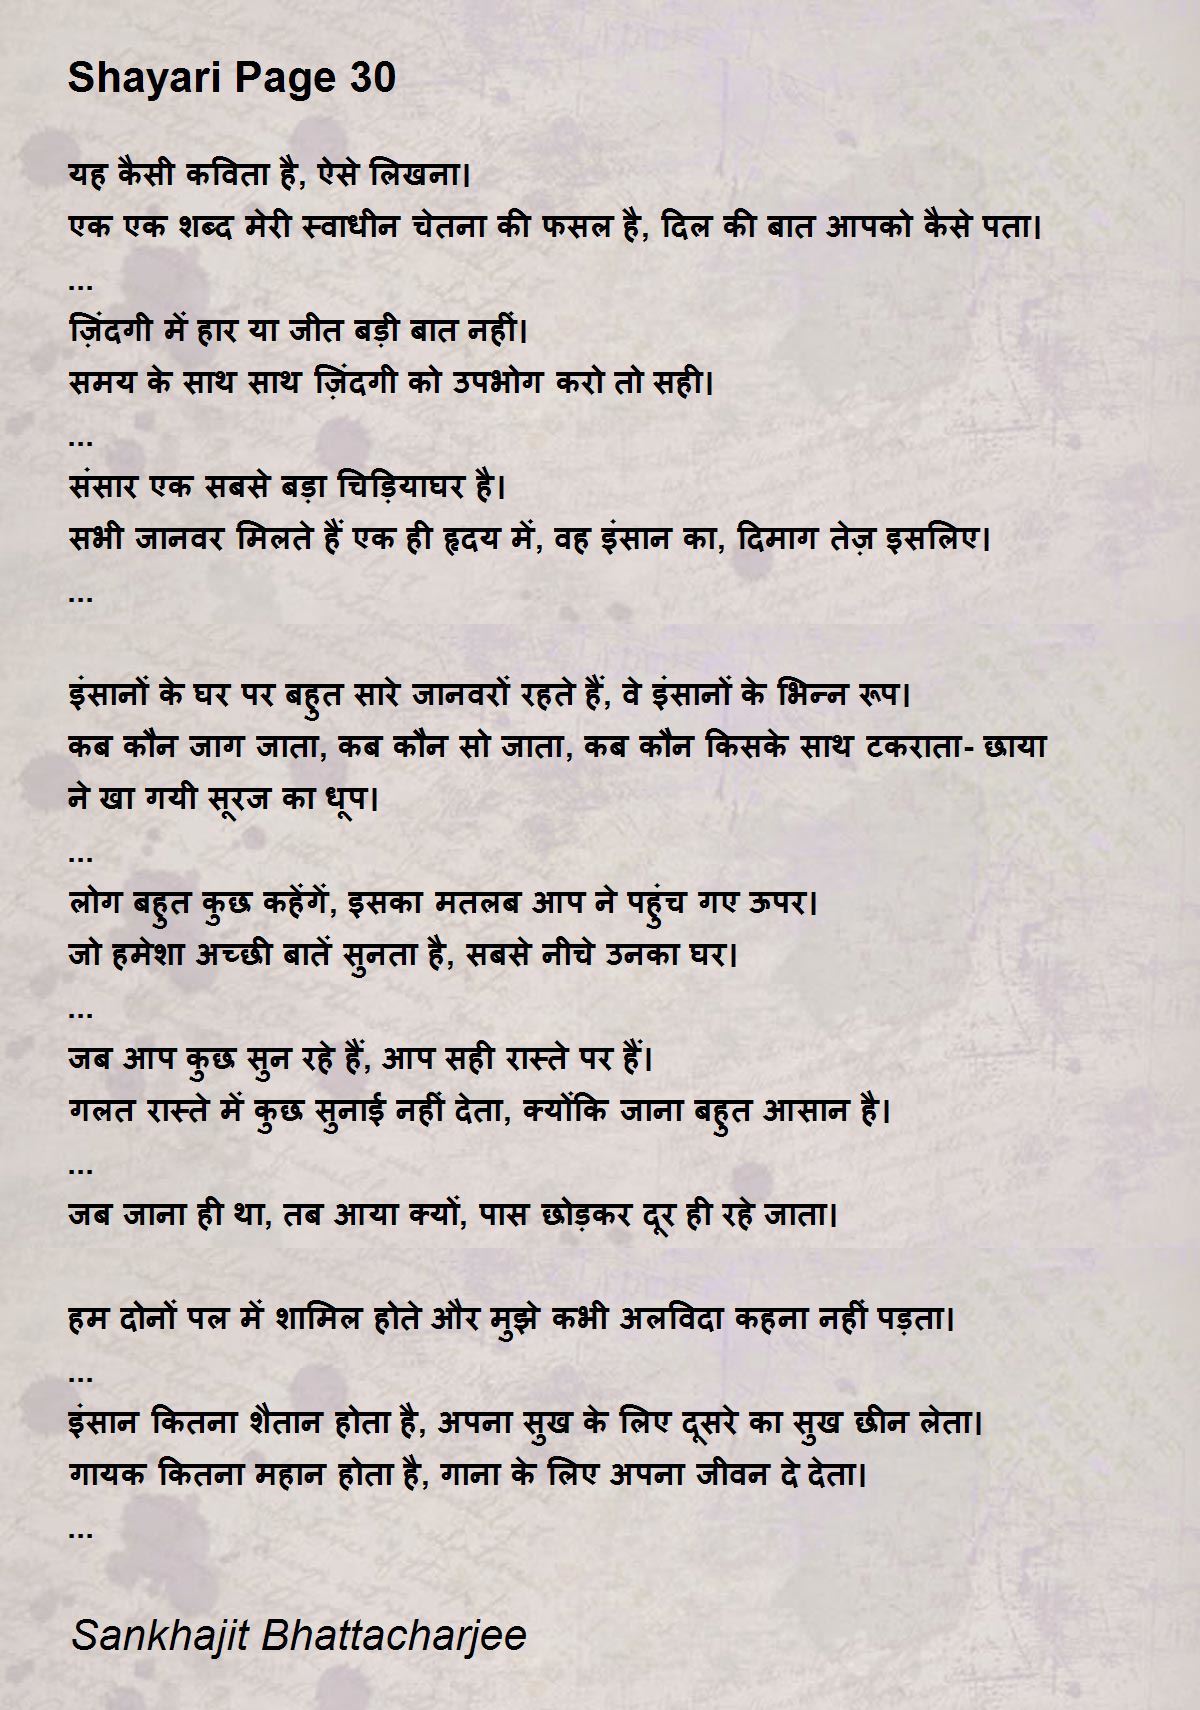 Shayari Page 30
यह कैसी कविता है, ऐसे लिखना।
एक एक शब्द मेरी स्वाधीन चेतना की फसल है, दिल की बात आपको कैसे पता।
...
ज़िंदगी में हार या जीत बड़ी बात नहीं।
समय के साथ साथ ज़िंदगी को उपभोग करो तो सही।
...
संसार एक सबसे बड़ा चिड़ियाघर है।
सभी जानवर मिलते हैं एक ही हृदय में, वह इंसान का, दिमाग तेज़ इसलिए।
...
इंसानों के घर पर बहुत सारे जानवरों रहते हैं, वे इंसानों के भिन्न रूप।
कब कौन जाग जाता, कब कौन सो जाता, कब कौन किसके साथ टकराता- छाया
ने खा गयी सूरज का धूप।
...
लोग बहुत कुछ कहेंगें, इसका मतलब आप ने पहुंच गए ऊपर।
जो हमेशा अच्छी बातें सुनता है, सबसे नीचे उनका घर।
...
जब आप कुछ सुन रहे हैं, आप सही रास्ते पर हैं।
गलत रास्ते में कुछ सुनाई नहीं देता, क्योंकि जाना बहुत आसान है।
...
जब जाना ही था, तब आया क्यों, पास छोड़कर दूर ही रहे जाता।
हम दोनों पल में शामिल होते और मुझे कभी अलविदा कहना नहीं पड़ता।
...
इंसान कितना शैतान होता है, अपना सुख के लिए दूसरे का सुख छीन लेता।
गायक कितना महान होता है, गाना के लिए अपना जीवन दे देता।
...
Sankhajit Bhattacharjee